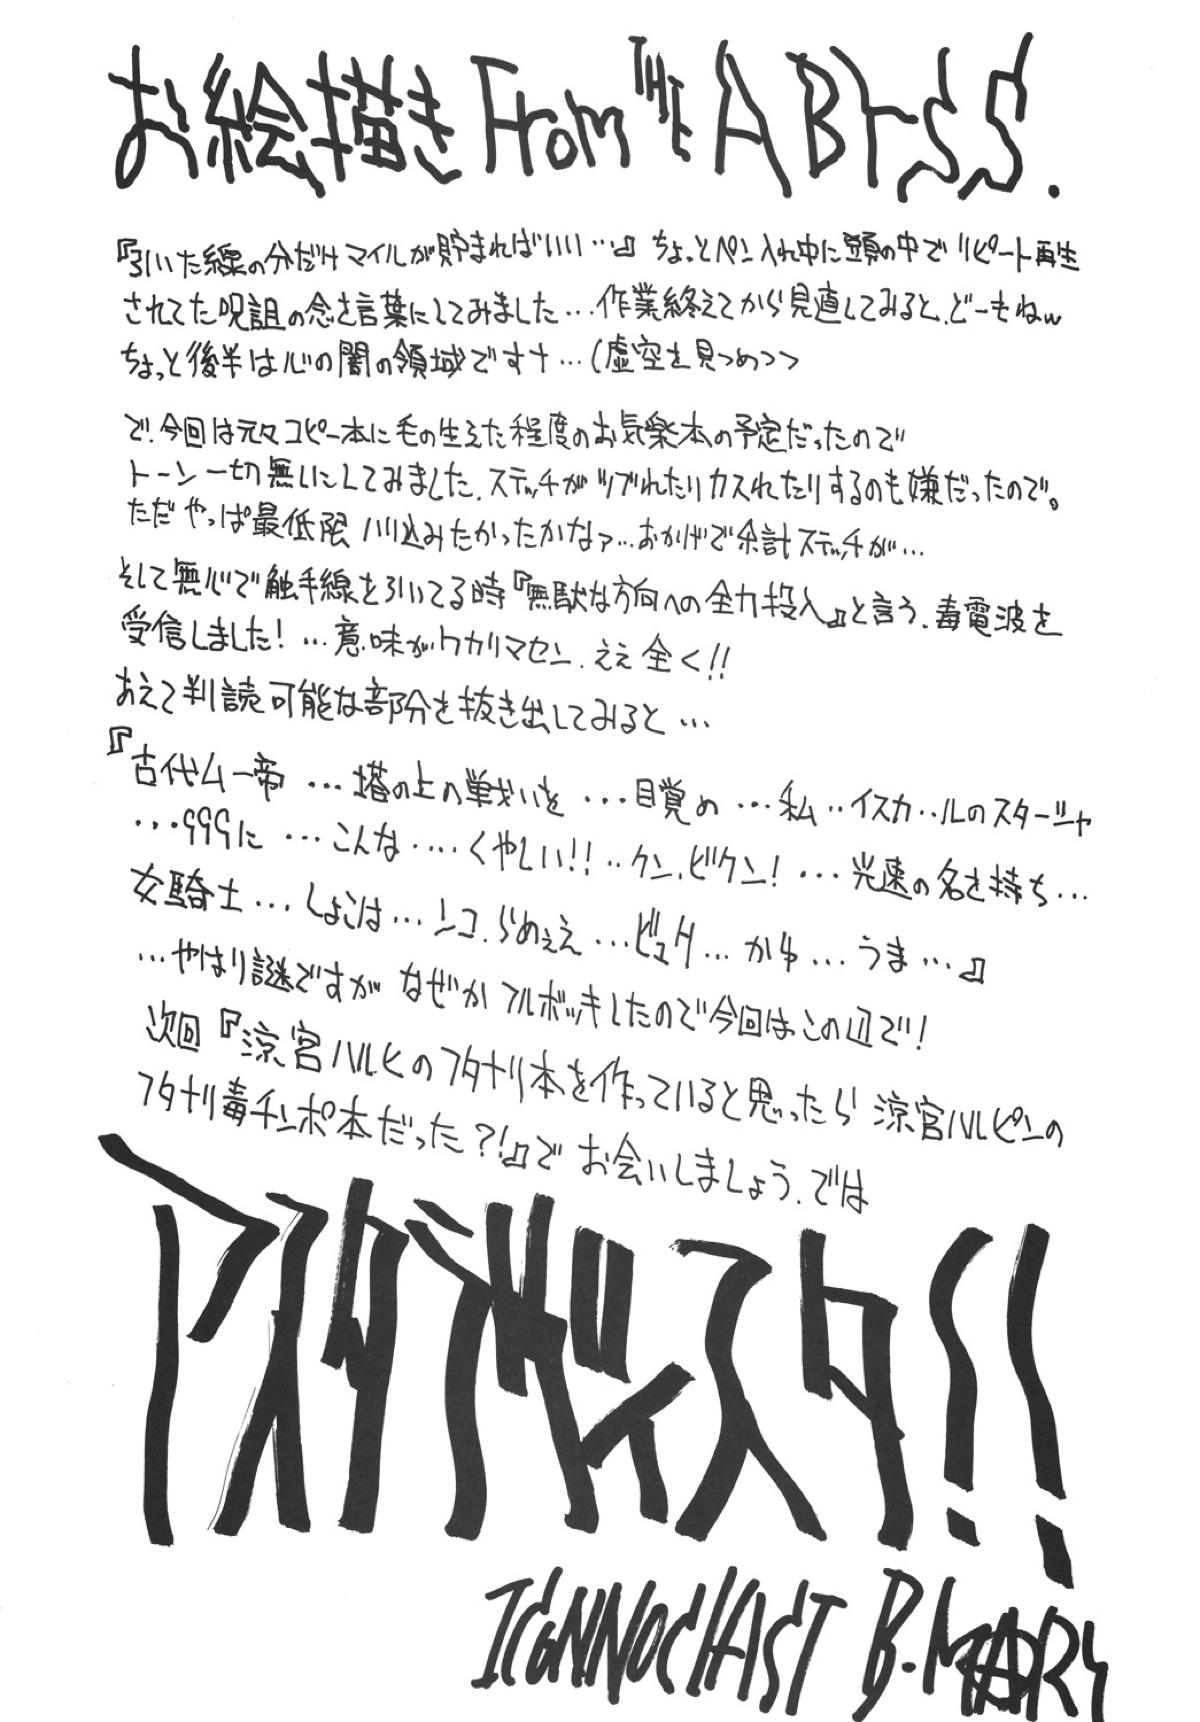 お絵描き From THE ABYSS.
『引いた線の分だけマイルが貯まればいい…』ちょっとペン入れ中に頭の中でリピート再生
されてた呪詛の念を言葉にしてみました…作業終えてから見直してみると、どーもねw
ちょっと後半は心の闇の領域です†…(虚空を見つめつつ
で、今回は元々コピー本に毛の生えた程度のお気楽本の予定だったので
トーン一切無しにしてみました、ステッチがツブれたりカスれたりするのも嫌だったので。
ただやっぱ最低限ハリ込みたかったかなァ…おかげで余計ステッチが…
そして無心で触手線を引いてる時『無駄な方向への全力投入』と言う、毒電波を
受信しました!…意味がワカリマセン、ええ全く!!
あえて判読可能な部分を抜き出してみると…
『古代ムー帝…塔の上の戦いを…目覚め…私‥イスカ‥ルのスターシャ
…999に…こんな…‥くやしい!!‥クン、ビクン!…光速の名を持ち…
女騎士…しょこは…ンコ、らめぇえ…ビュク…かゆ…うま…』
…やはり謎ですがなぜかフルボッキしたので今回はこの辺で!
次回『涼宮ハルヒのフタナリ本を作っていると思ったら涼宮ハルピンの
フタナリ毒チンポ本だった?!』でお会いしましょう、では
アスタラビィスタ!!
ICONNOCLAST B.MARY